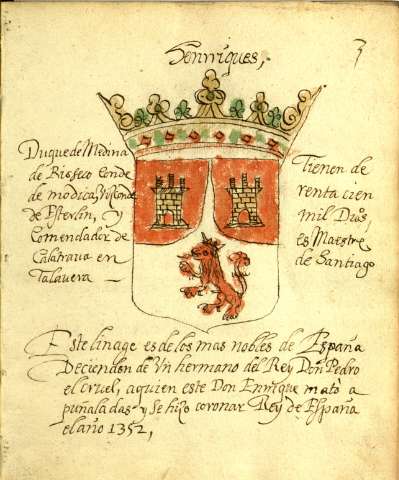 3
Henrriques,
Duque de Medina
de Rioseco Conde
de modica, Visconde
de Esterlin, y
Comendador de
Calatraua en
Talauera
Tienen de
renta cien
mil Dụos,
es Maestre
de Santiago
Este linage es de los mas nobles de España
Decienden de Vn hermano del Rey Don Pedro
el cruel, aquien este Don Enrrique matò a
puñaladas y Se hizo coronar Rey de España
el año 1352,